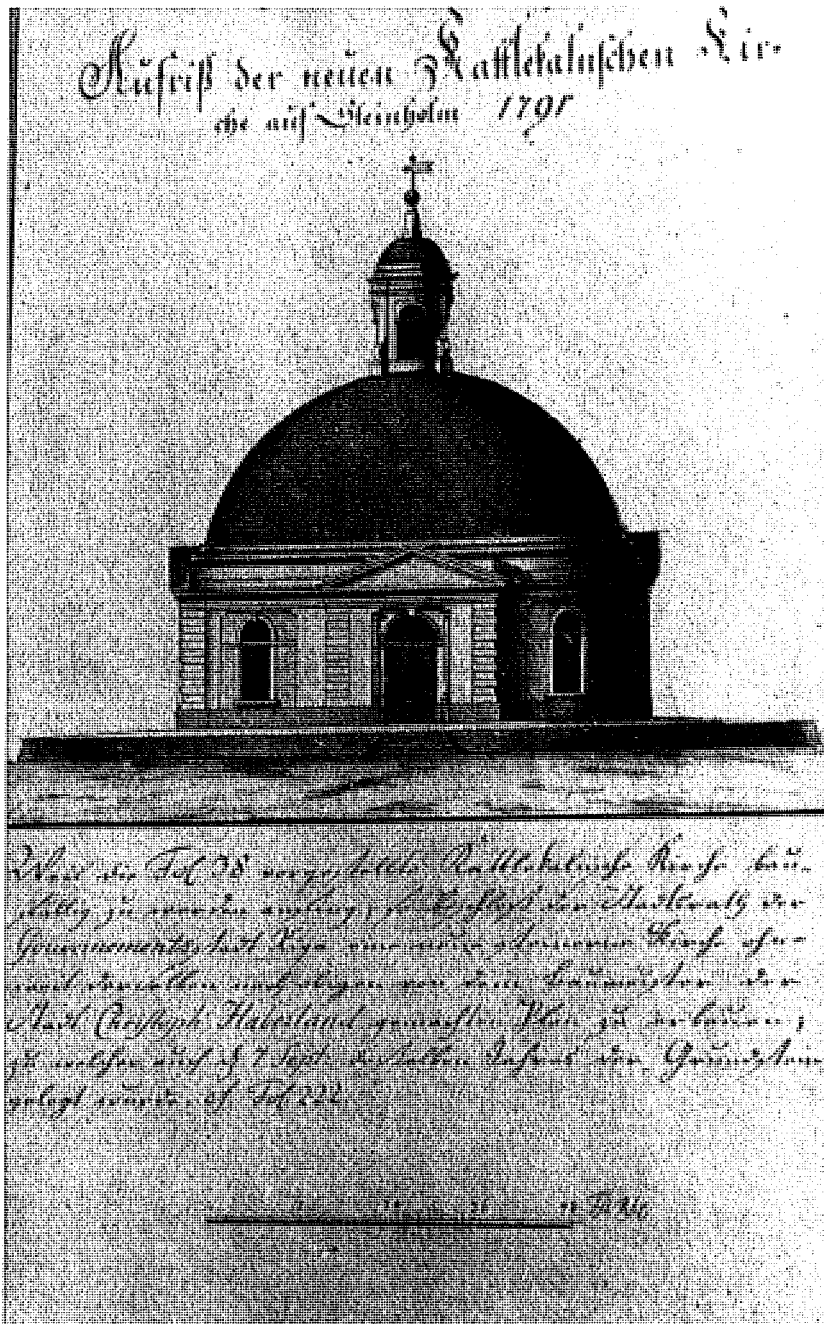 Aufriß der neuen Kattlekalnschen Kir-
che auf Bleinholm 1791
Weil die Fol 38 vorgestellte Kattlekalnsche Kirche bau-
fällig zu werden anfing, so beschloß der Stadtrath der
Gouvernements Stadt Riga eine neue steinerne Kirche ohn-
weit derselben nach obigen von dem Baumeister der
Stadt Christoph Haberland gemachten Plan zu erbauen;
zu welcher auch d 7 Sept. desselben Jahres der Grundstein
gelegt wurde. cf Fol 222